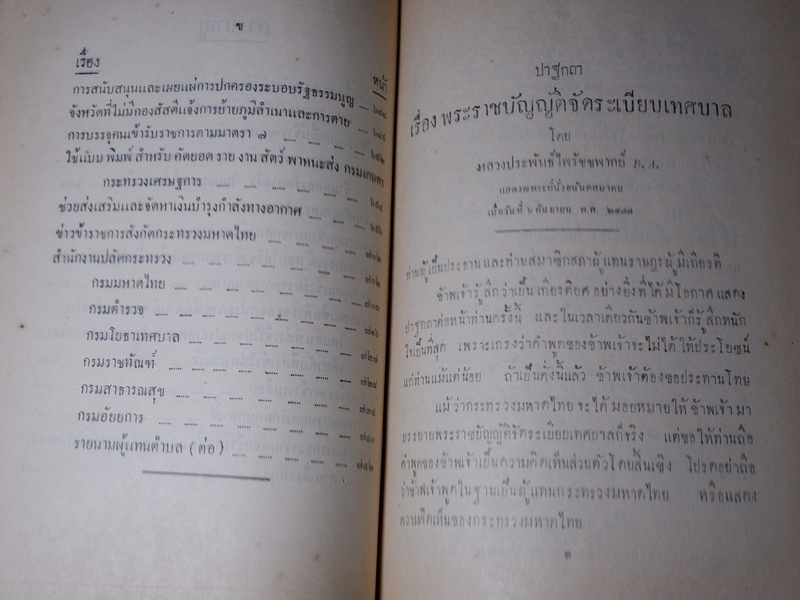 ข
เรื่อง
หน้า
การสนับสนุนและเผยแผ่การปกครองระบอบรัฐธรรมนูญ
จังหวัดที่ไม่มีกองสัสดีแจ้งการย้ายภูมิลำเนาและการตาย
การบรรจุคนเข้ารับราชการตามมาตรา ๗
ใช้แบบ พิมพ์ สำหรับ คัดยอด ราย งาน สัตว์ พาหนะส่ง กรมเกษตร
กระทรวงเศรษฐการ
ช่วยส่งเสริมและจัดหาเงินบำรุงกำลังทางอากาศ
ข่าวข้าราชการสังกัดกระทรวงมหาดไทย
สำนักงานปลัดกระทรวง ๗๐๒
กรมมหาดไทย ๗๐๓
กรมตำรวจ ๗๑๖
กรมโยธาเทศบาล ๗๒๗
กรมราชทัณฑ์ ๗๒๘
กรมสาธารณสุข ๗๓๔
กรมอัยยการ ๗๔๑
รายนามผู้แทนตำบล (ต่อ) ๗๔๒
ปาฐกถา
เรื่อง พระราชบัญญัติจัดระเบียบเทศบาล
โดย
หลวงประพันธ์ไพรัชชพากย์
แสดงณพระที่นั่งอนันตสมาคม
เมื่อวันที่ ๖ กันยายน พ.ศ. ๒๔๗๗
ท่านผู้เป็นประธาน และท่านสมาชิกสภาผู้แทนราษฎรผู้มีเกียรติ
ข้าพเจ้ารู้สึกว่าเป็นเกียรติยศ อย่างยิ่งที่ได้มีโอกาศแสดง
ปาฐกถาต่อหน้าท่านครั้งนี้ และในเวลาเดียวกันข้าพเจ้าก็รู้สึกหนัก
ใจเป็นที่สุด เพราะเกรงว่าคำพูดของข้าพเจ้าจะไม่ได้ให้ประโยชน์
แก่ท่านแม้แต่น้อย ถ้าเป็นดั่งนี้แล้ว ข้าพเจ้าต้องขอประทานโทษ
แม้ว่ากระทรวงมหาดไทยจะได้มอบหมายให้ข้าพเจ้ามา
บรรยายพระราชบัญญัติจัดระเบียบเทศบาลก็จริง แต่ขอให้ท่านถือ
คำพูดของข้าพเจ้าเป็นความคิดเห็นส่วนตัวโดยสิ้นเชิง โปรดอย่าถือ
ว่าข้าพเจ้าพูดในฐานเป็นผู้แทนกระทรวงมหาดไทย หรือแสดง
ความคิดเห็นของกระทรวงมหาดไทย
๑